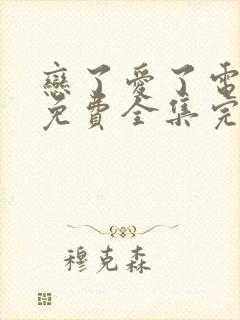 戀了愛了電
免費全集完
穆克森